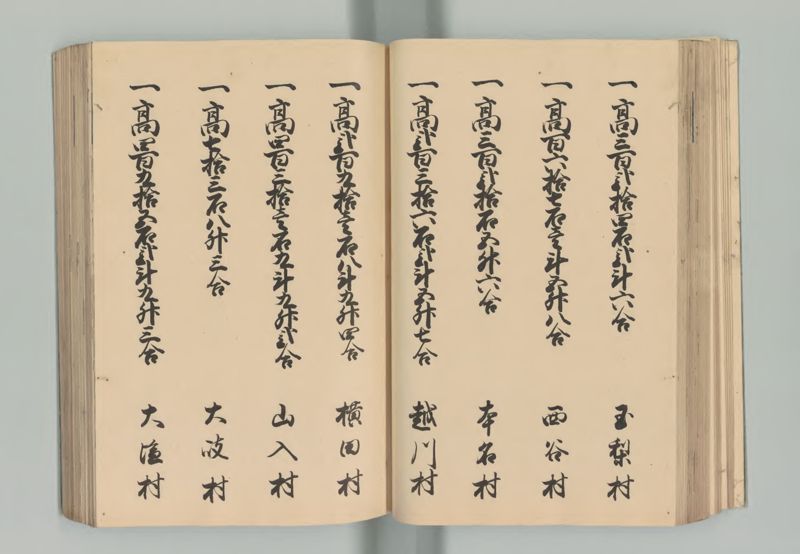 一高三百弐拾四石弐斗六合 玉梨村
一高百六拾七石壱斗五升八合 西谷村
一高三百弐拾石五升六合 本名村
一高弐百三拾六石弐斗五升七合 越川村
一高弐百九拾壱石八斗九升四合 横田村
一高四百三拾壱石九斗九升弐合 山入村
一高七拾三石八升三合 大岐村
一高四百九拾五石弐斗九升三合 大塩村